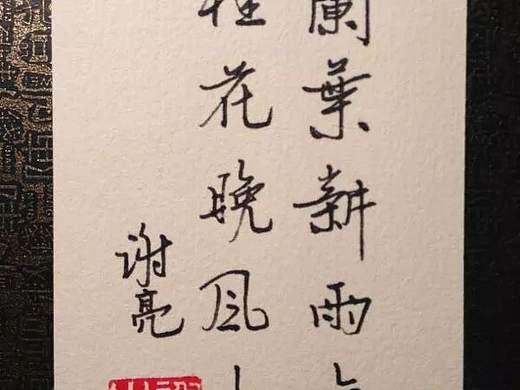 蘭葉新雨
桂花晚风
谢亮